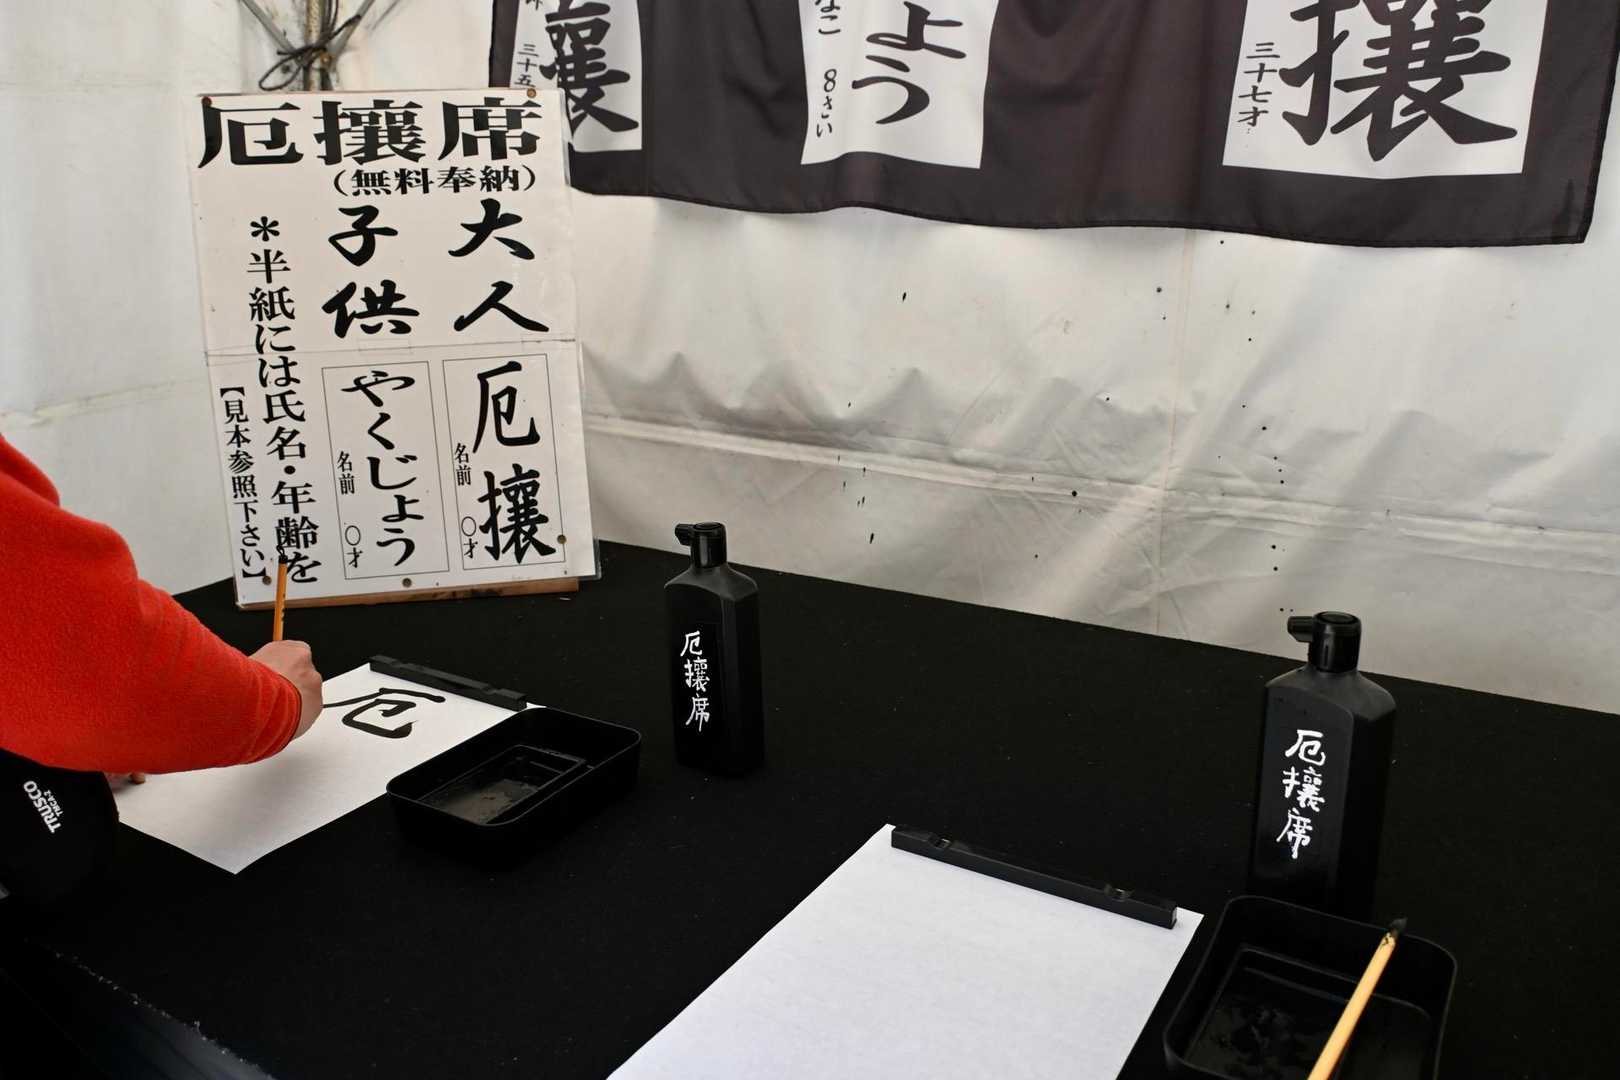 厄攘席
(無料奉納)
大人
厄攘
名前
〇才
子供
やくじょう
名前
〇才
＊半紙には氏名・年齢を
【見本参照下さい】
攘
三十七才
よう
なこ
8さい
攘
三十五
厄
厄攘席
厄攘席
TRUSCO
TMCA-2